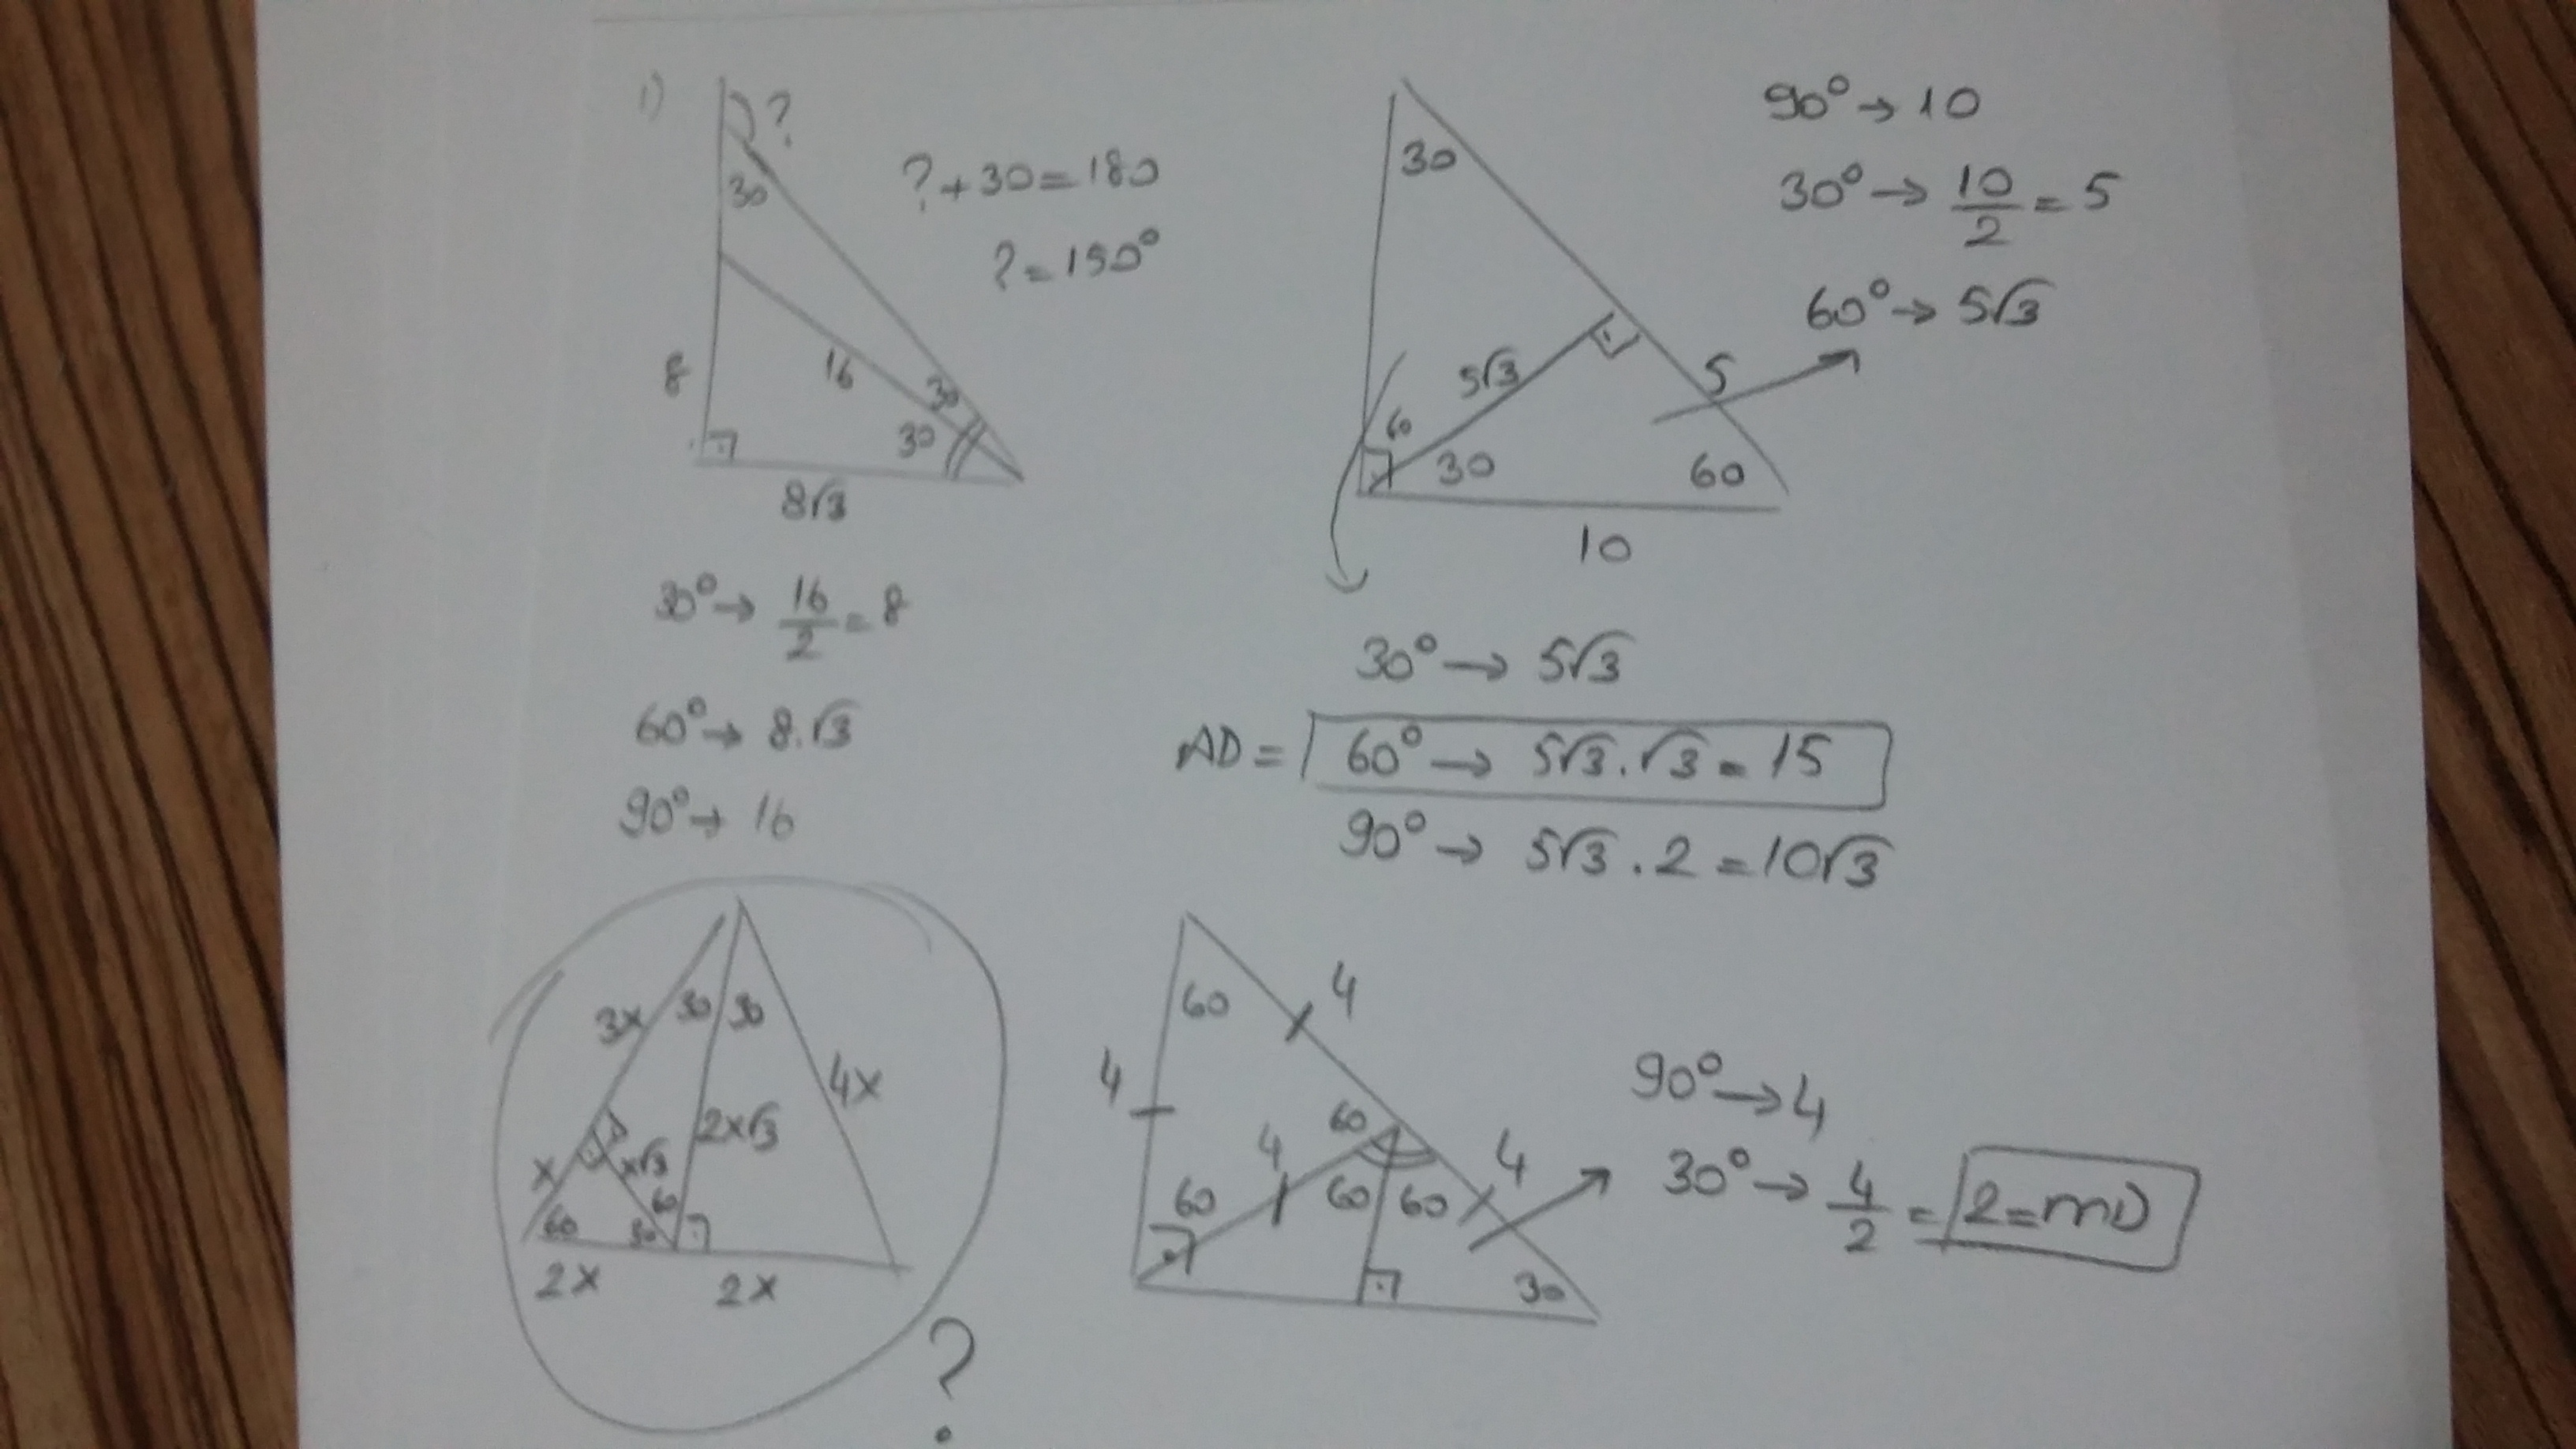 1)
?
30
?+30=180
?=150°
8
16
30
30
8√3
30°→ 16/2 = 8
60°→ 8.√3
90°→ 16
30
5√3
5
60
30
60
10
90°→ 10
30°→ 10/2 = 5
60°→ 5√3
30°→ 5√3
AD = 60°→ 5√3.√3 = 15
90°→ 5√3.2 = 10√3
3x
30
30
4x
2x√3
x
x√3
60
60
30
2x
2x
?
60
4
4
60
4
4
60
60
60
30
90°→4
30°→ 4/2 = 2=MD